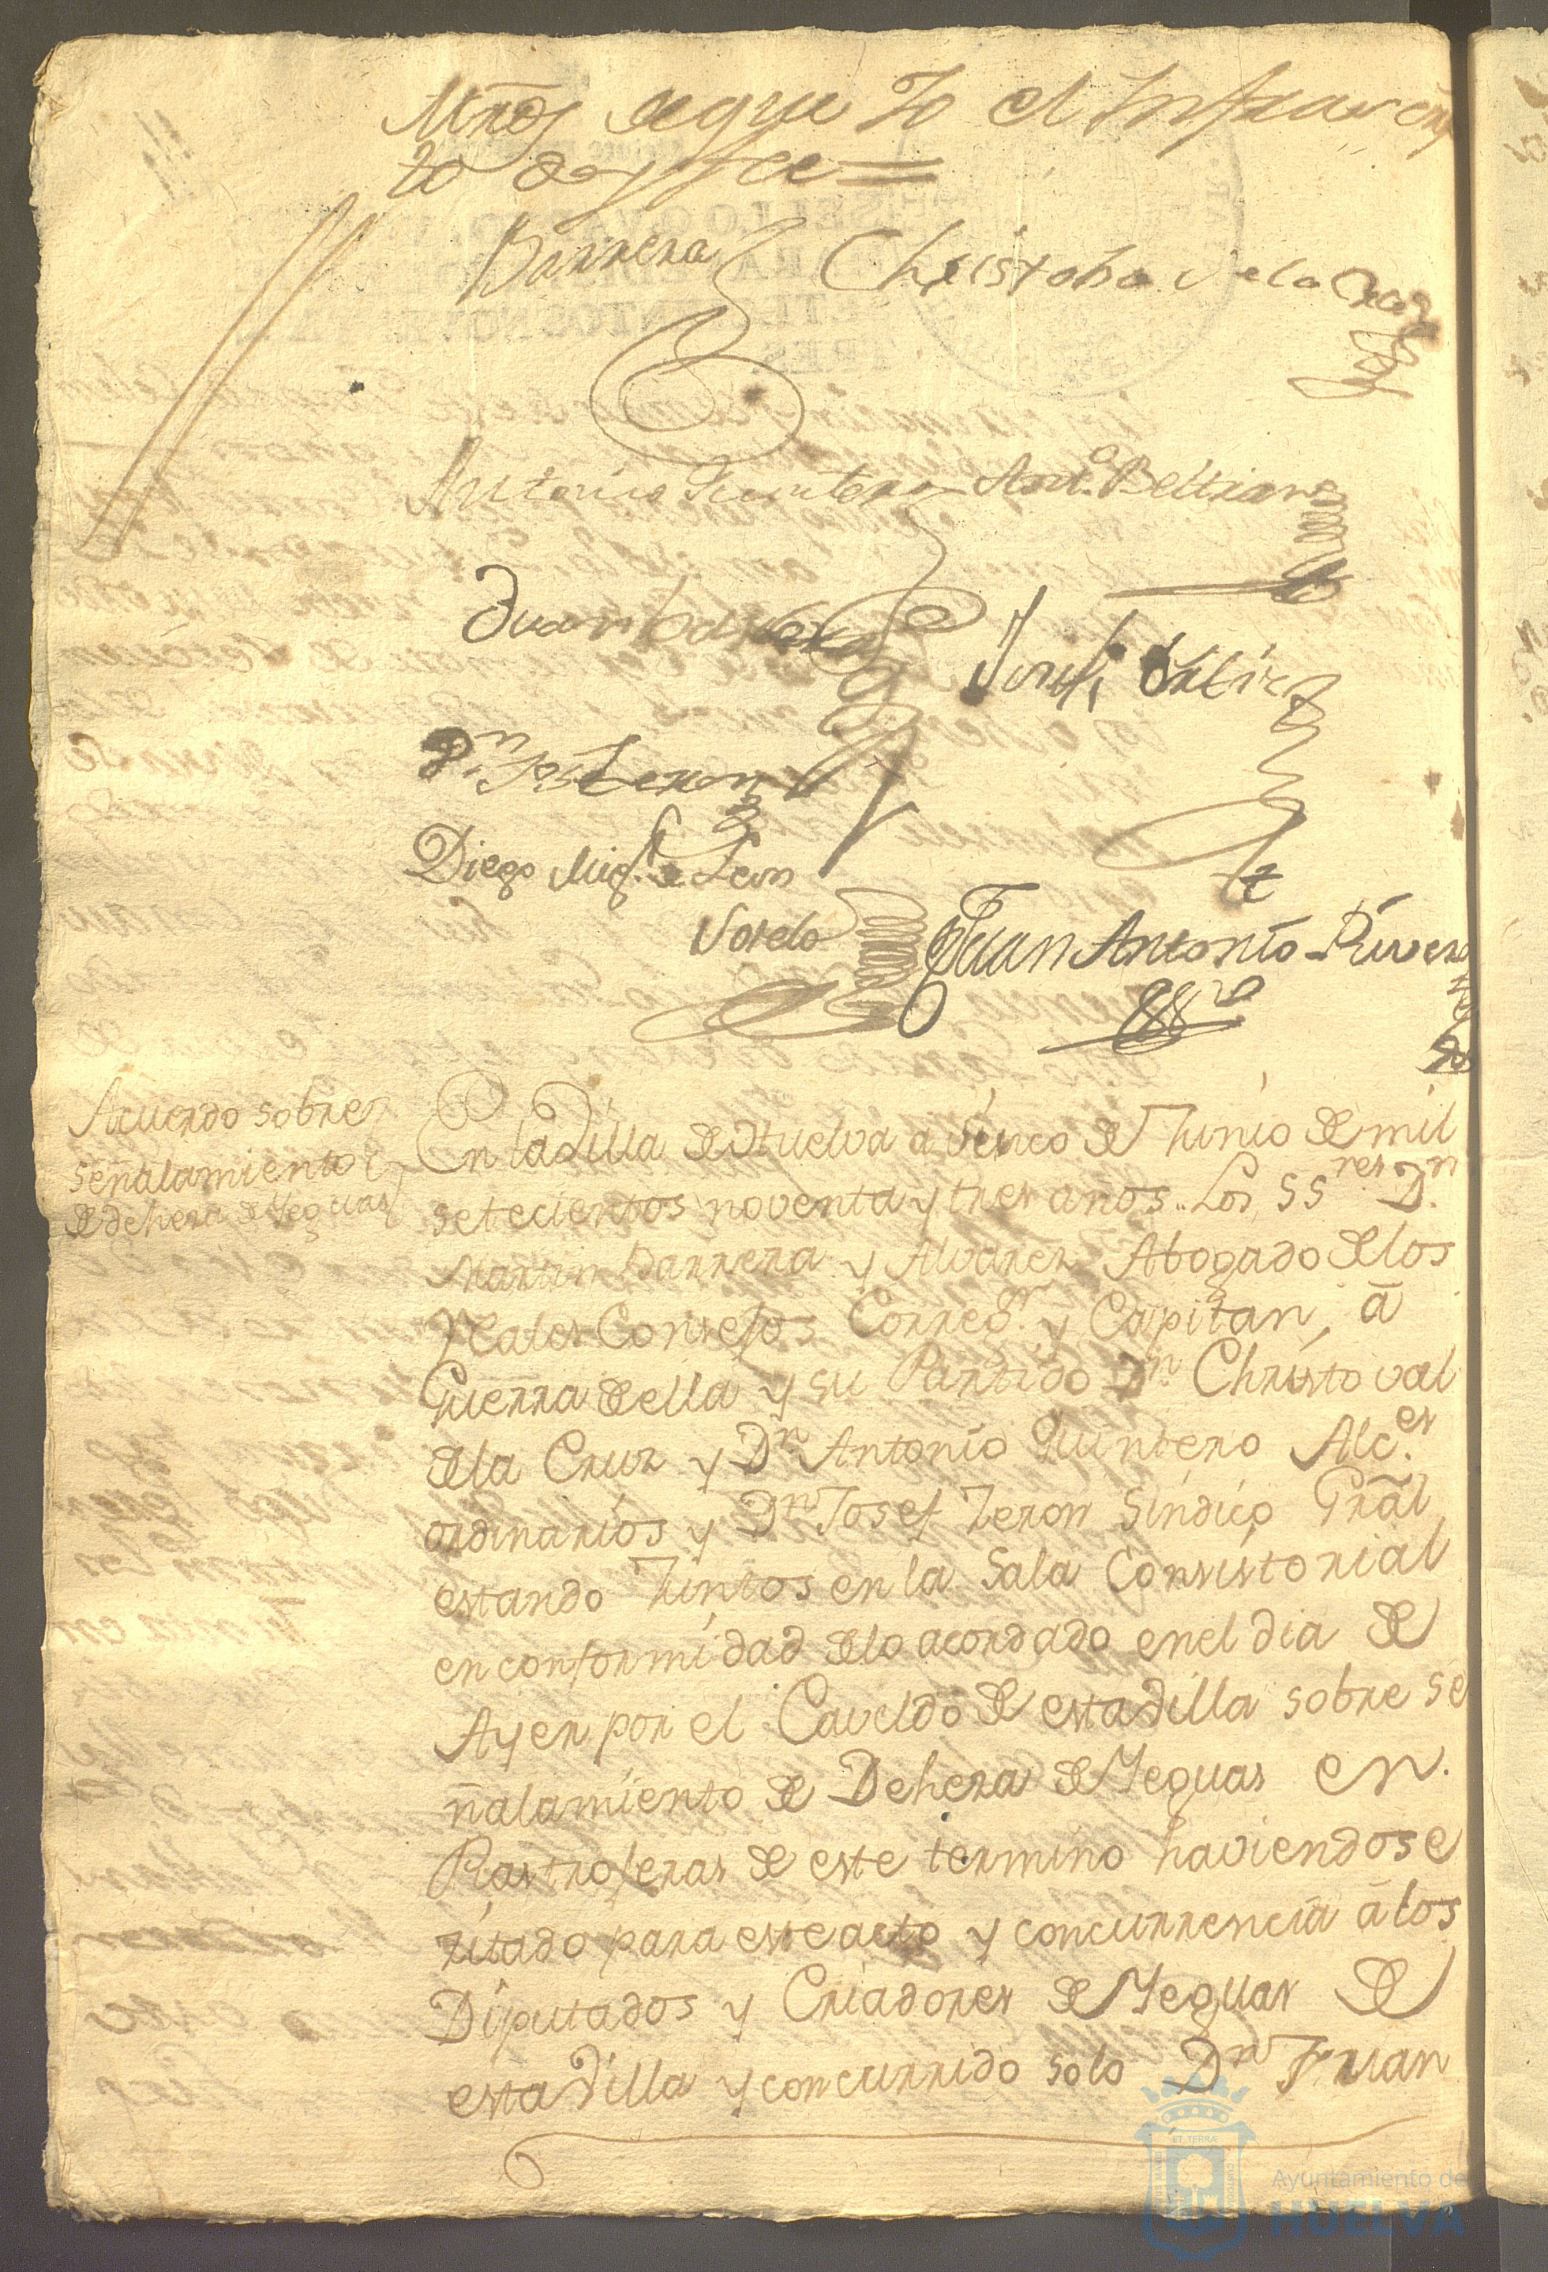 Mrds deque Yo el Infraescrip
to doy fee =
Barrera Christobal de la Cruz
Antonio Quintero Anto. Beltran
Juan
Josef Ortiz
Dn. Josef Zeron
Diego Migl. de Leon
Sotelo
Juan Antonio Rivera
Essno
Acuerdo sobre
señalamiento
de dehesa de Yeguas
En la Villa de Huelva a sinco de Junio de mil
setecientos noventa y tres años. Los SSres Dn.
Martin Barrera y Alvarez Abogado de los
Reales Consejos Corregor. y Capitan, â
Guerra de ella y su Partido Dn. Christoval
de la Cruz y Dn Antonio Quintero Alces.
ordinarios y Dn Josef Zeron Sindico Grãl
estando Juntos en la Sala Consistorial
en conformidad de lo acordado en el dia de
Ayer por el Caveldo de esta Villa sobre se
ñalamiento de Dehesa de Yeguas en
Rastrojeras de este termino haviendose
zitado para este acto y concurrencia â los
Diputados y Criadores de Yeguas de
esta Villa y concurrido solo Dn Juan
ET TERRÆ
Ayuntamiento de
HUELVA